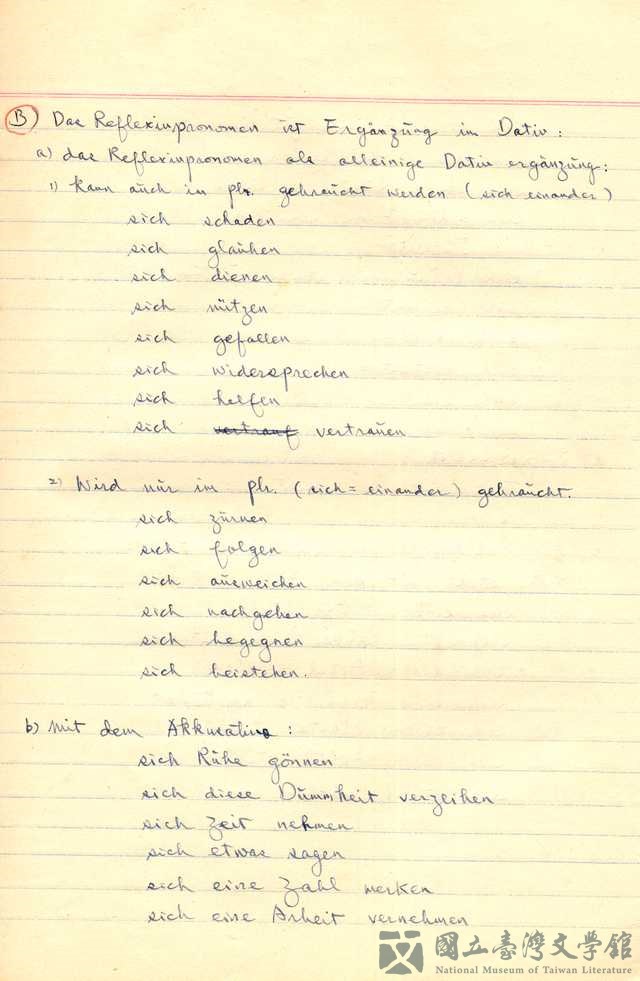 B) Das Reflexivpronomen ist Ergänzung im Dativ:
a) das Reflexivpronomen als alleinige Dativ ergänzung:
1) kann auch im plr. gebraucht werden (sich einander)
sich schaden
sich glauben
sich dienen
sich nützen
sich gefallen
sich widersprechen
sich helfen
sich vertrauf vertrauen
2) Wird nur im plr. (sich = einander) gebraucht.
sich zürnen
sich folgen
sich ausweichen
sich nachgehen
sich begegnen
sich beistehen.
b) mit dem Akkusativ:
sich Ruhe gönnen
sich diese Dummheit verzeihen
sich Zeit nehmen
sich etwas sagen
sich eine Zahl merken
sich eine Arbeit vernehmen
國立臺灣文學館
National Museum of Taiwan Literature